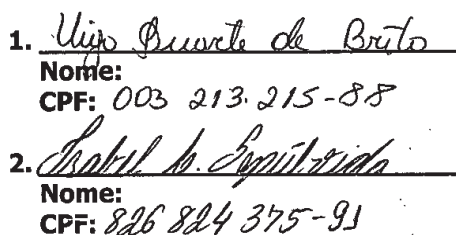 1. Duarte de Brito
Nome:
CPF: 003 213.215-88
2. Isabel Sepúlvida
Nome:
CPF: 826 824 375-91